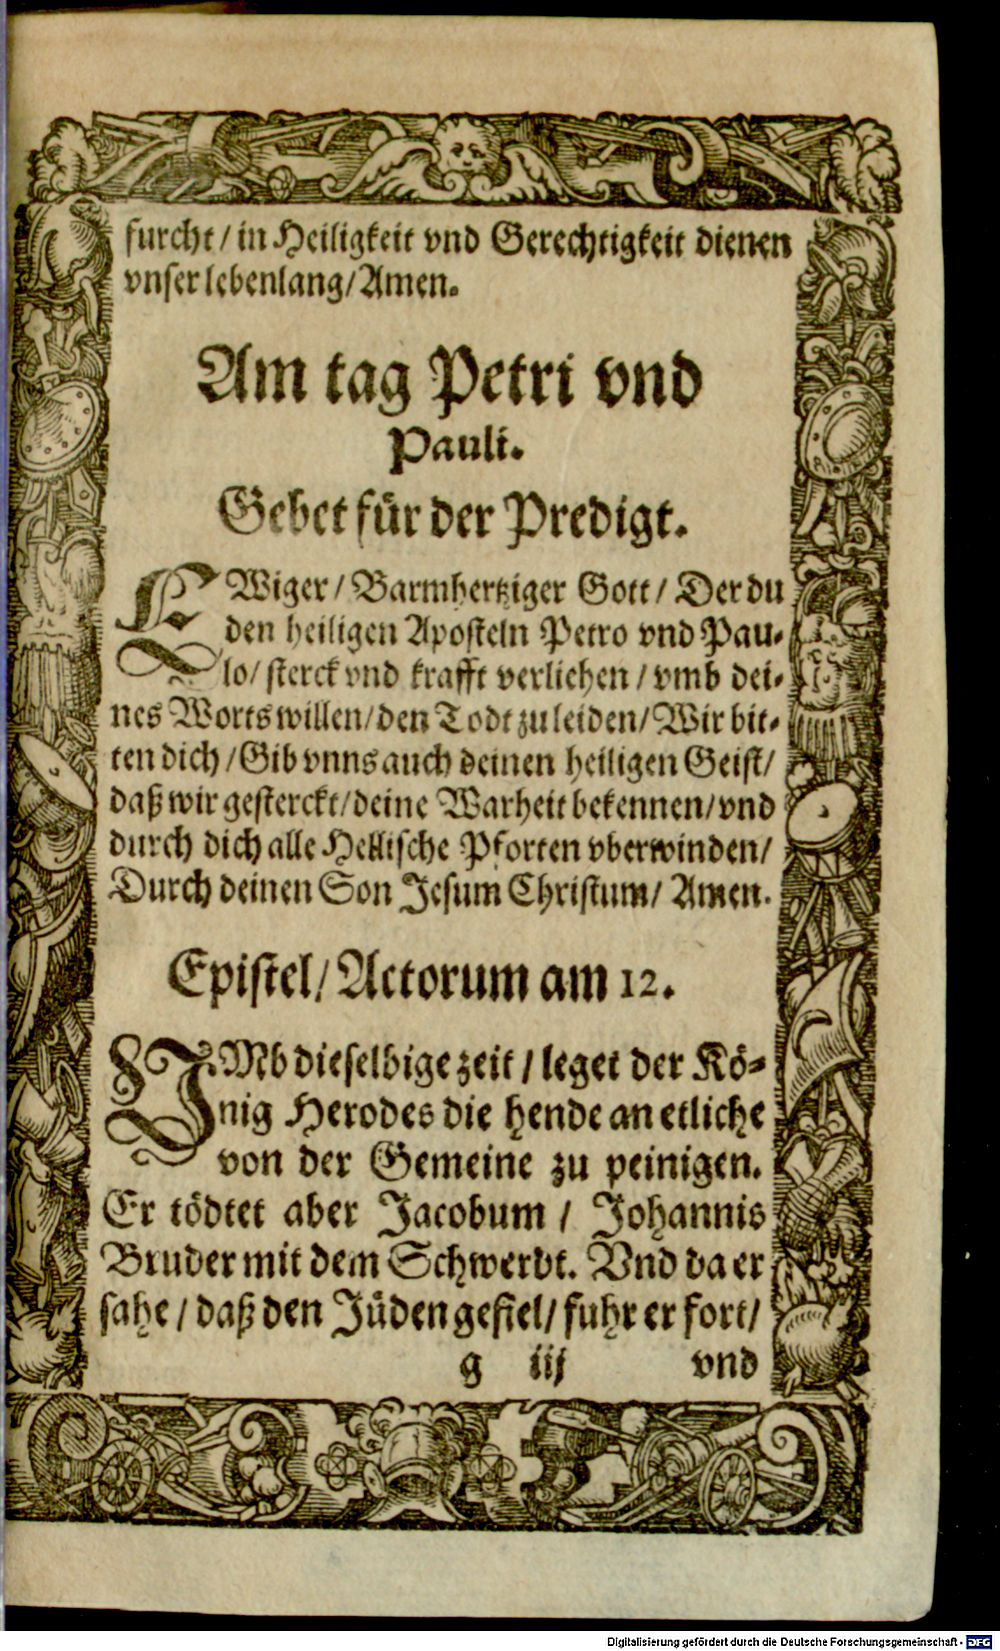 furcht/ in Heiligkeit vnd Gerechtigkeit dienen
vnser lebenlang/ Amen.
Am tag Petri vnd
Pauli.
Gebet für der Predigt.
EWiger/ Barmhertziger Gott/ Der du
den heiligen Aposteln Petro vnd Pau-
lo/ sterck vnd krafft verliehen/ vmb dei-
nes Worts willen/ den Todt zu leiden/ Wir bit-
ten dich/ Gib vnns auch deinen heiligen Geist/
daß wir gesterckt/ deine Warheit bekennen/ vnd
durch dich alle Hellische Pforten vberwinden/
Durch deinen Son Jesum Christum/ Amen.
Epistel/ Actorum am 12.
VMb dieselbige zeit/ leget der Kö-
nig Herodes die hende an etliche
von der Gemeine zu peinigen.
Er tödtet aber Jacobum/ Johannis
Bruder mit dem Schwerdt. Vnd da er
sahe/ daß den Jüden gefiel/ fuhr er fort/
g iij vnd
Digitalisierung gefördert durch die Deutsche Forschungsgemeinschaft - DFG